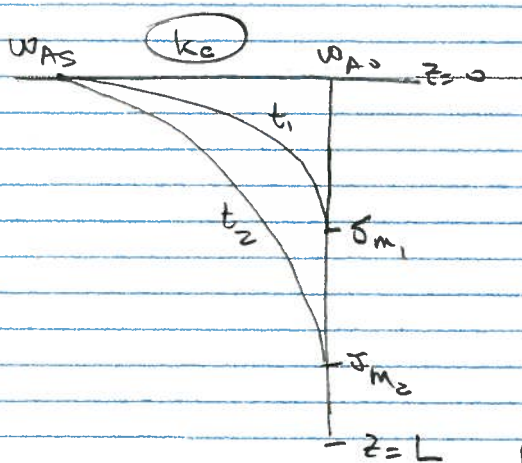 ω_AS k_c ω_A0 z=0
t₁
t₂ δ_m₁
δ_m₂
z=L